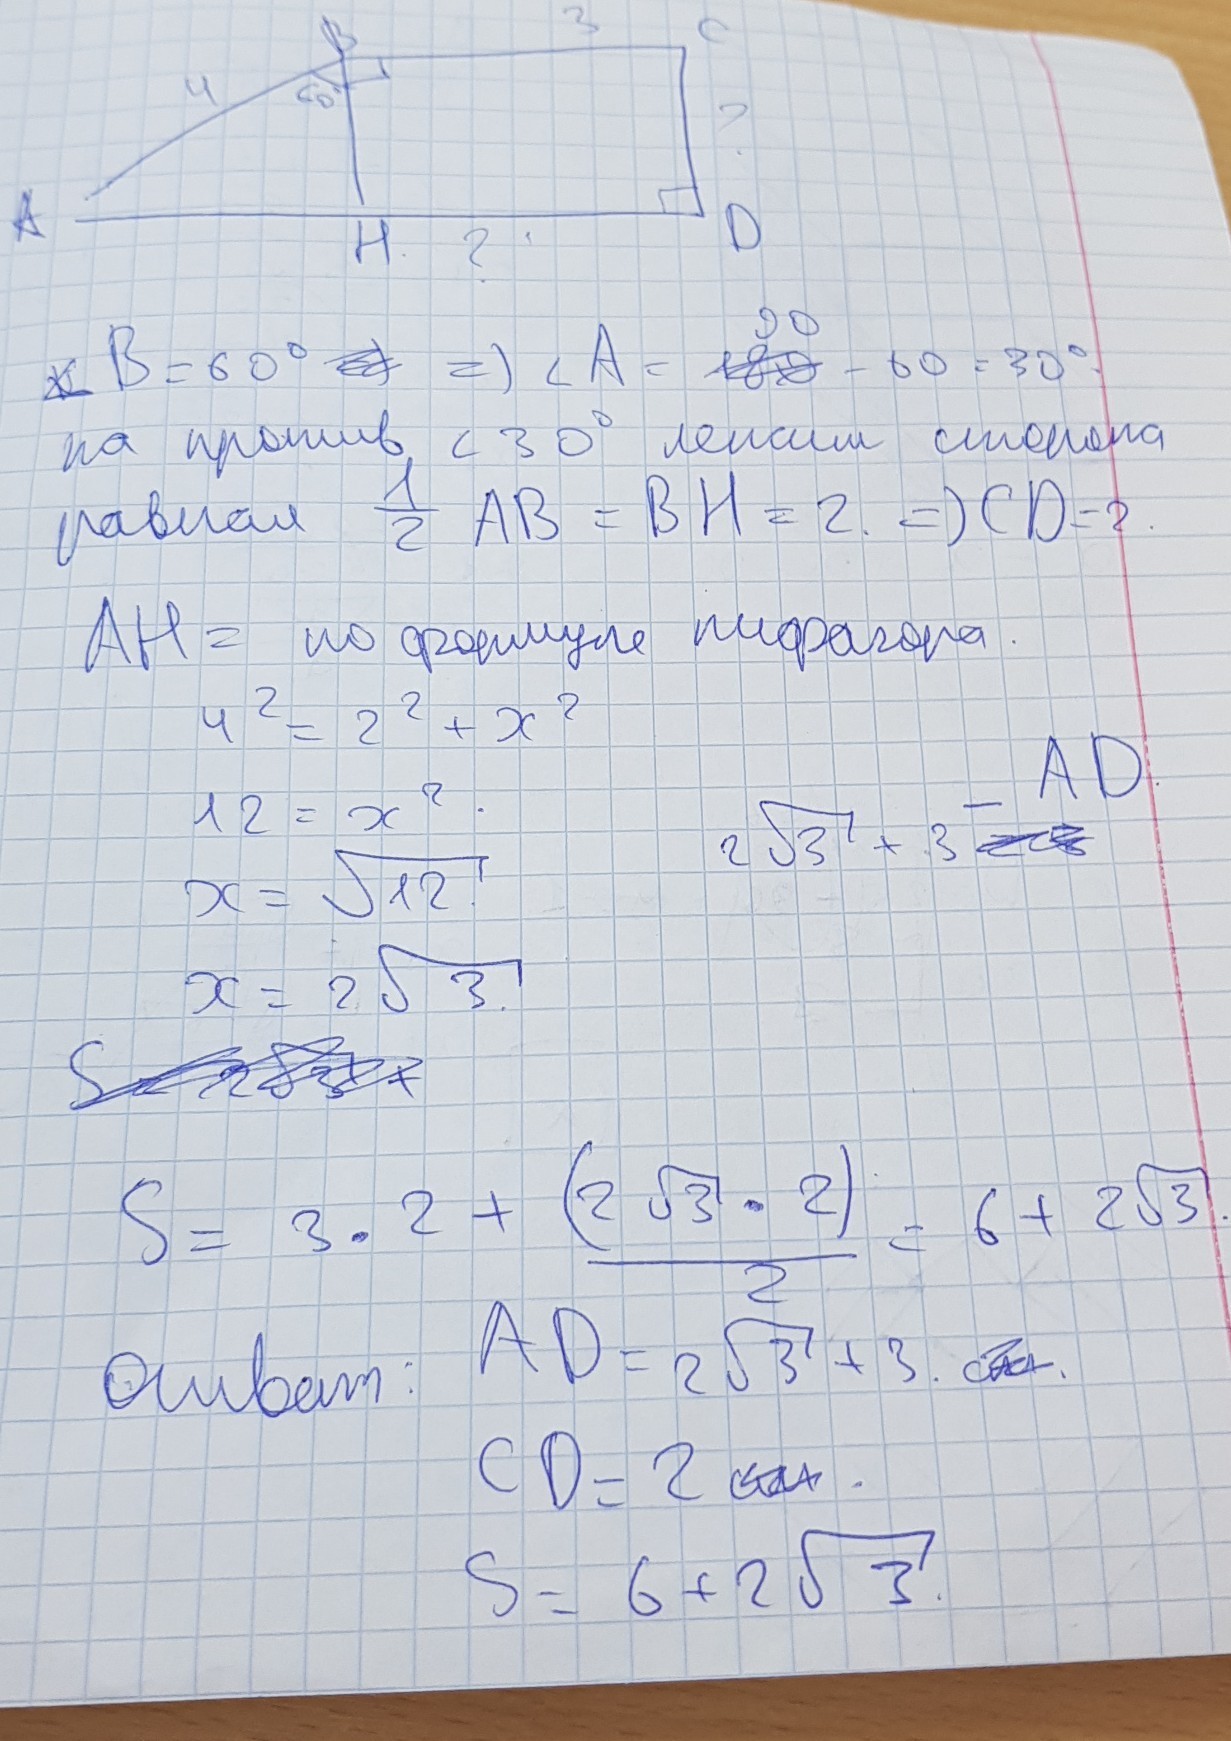 B 3 C
4 60° ?
A H. ? D
∠B = 60° => ∠A = 90 - 60 = 30°.
на против ∠30° лежит сторона
равная 1/2 AB = BH = 2. => CD = 2.
AH = по формуле пифагора.
4² = 2² + x²
12 = x².
2√3 + 3 = AD.
x = √12
x = 2√3.
S = 3 · 2 + (2√3 · 2)/2 = 6 + 2√3.
Ответ: AD = 2√3 + 3.
CD = 2.
S = 6 + 2√3.